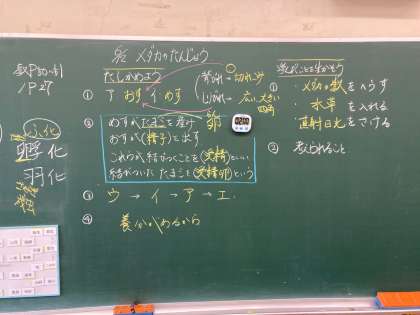 メダカのたんじょう
教P50-51
/P27
ふ化
孵化
羽化
たしかめよう
① ア おす イ めす
せびれ→切れこみ
しりびれ→広い大きい
② めすが たまごを産み
卵
おすが(精子)を出す
これらが結びつくことを(受精)といい
結びついたたまごを(受精卵)という
③ ウ → イ → ア → エ
④ 養分があるから
学んだことを生かそう
① ・メダカの数をへらす
・水草を入れる
・直射日光をさける
② 考えられること